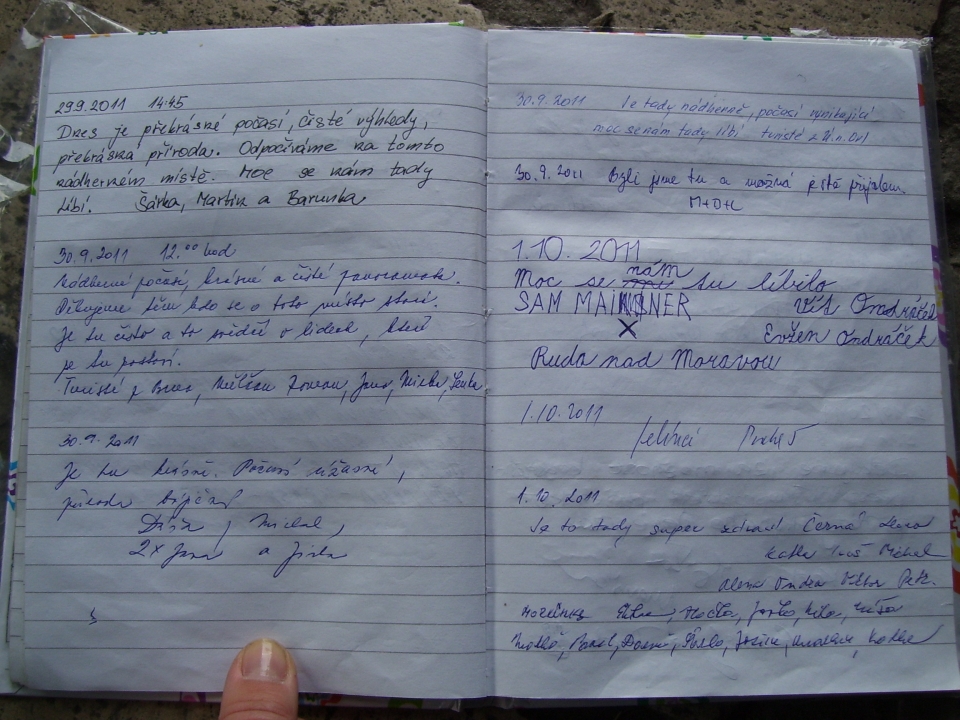 29.9.2011 14:45
Dnes je překrásné počasí, čisté výhledy,
překrásná příroda. Odpočíváme na tomto
nádherném místě. Moc se nám tady
líbí. Šárka, Martin a Barunka
30.9.2011 12.⁰⁰ hod
Nádherné počasí, krásné a čisté panorama.
Děkujeme všem kdo se o toto místo stará.
Je tu čisto a to svědčí o lidech, kteří
je tu
Turisté z Brna, Roman, Jana, Mirka, Lenka
30.9.2011
Je tu krásně. Počasí úžasné,
příroda báječná
Dáša, Michal,
2x Jana a Jirka
30.9.2011 Je tady nádherně, počasí vynikající
moc se nám tady líbí turisté z Ú.n.Orl
30.9.2011 Byli jsme tu a možná ještě přijdem
M+D+L
1.10.2011
Moc se nám tu líbilo
SAM MAINSNER Vít Ondráček
X Evžen Ondráček
Ruda nad Moravou
1.10.2011
Jelínci Praha 5
1.10.2011
Je to tady super zdraví Černá
Katka Michal
Alena Ondra Viktor Petr